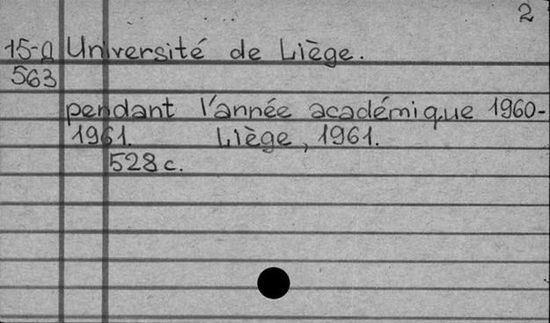 2
15-Д Université de Liège.
563
pendant l'année académique 1960-
1961. Liège, 1961.
528 c.